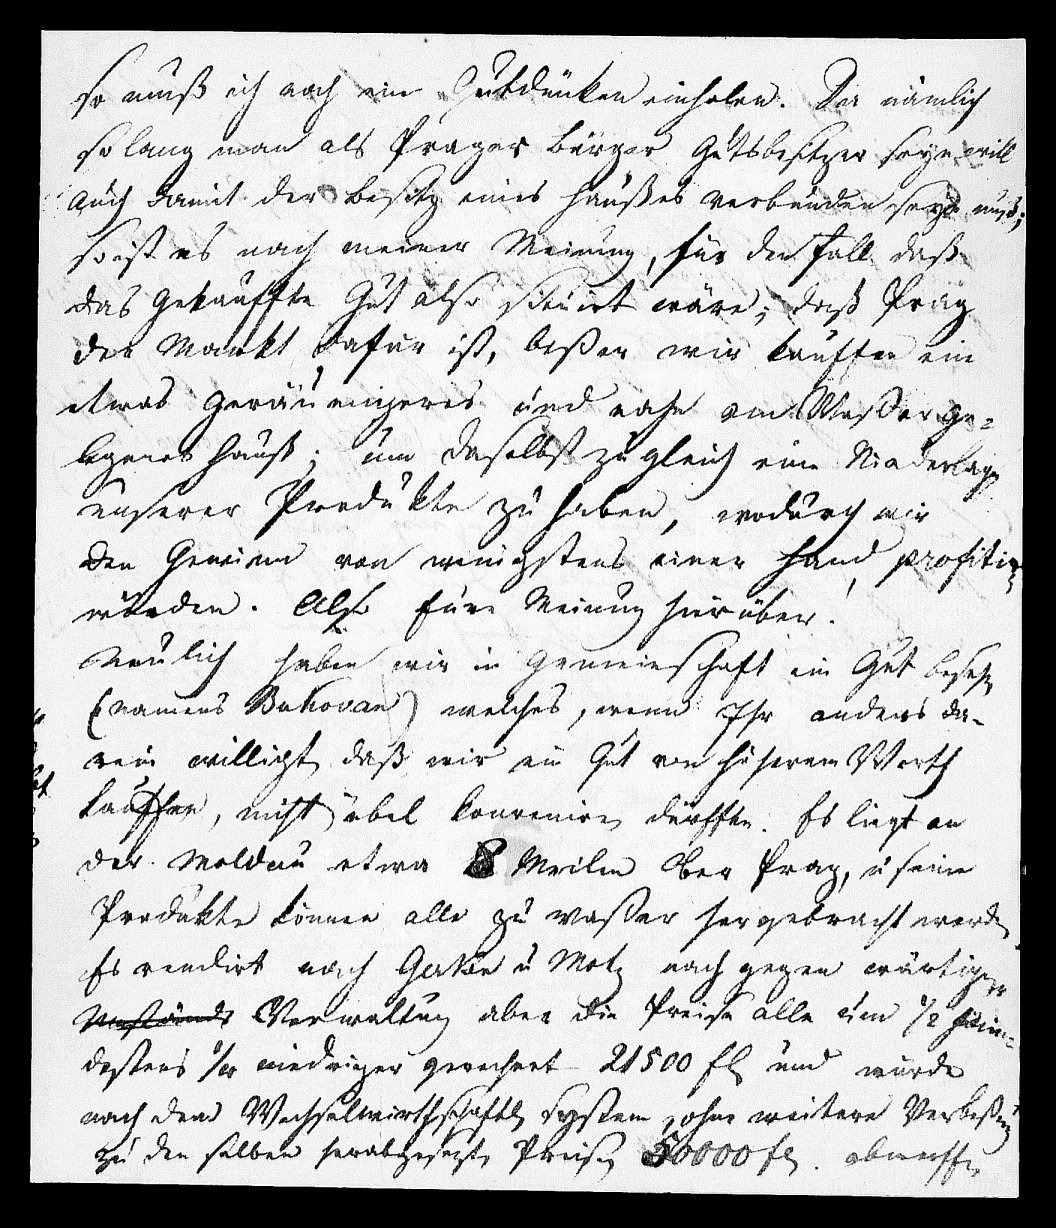 so muß ich noch ein Gutdünken einholen. Da nämlich
so lang man als Prager Bürger Gutsbesitzer seyn will
auch damit der Besitz eines Haußes verbunden seyn muß;
so ist es nach meiner Meinung, für den Fall daß
das gekauffte Gut also situirt wäre, daß Prag
der Markt dafür ist, beßer wir kauffen ein
etwas geräumigeres und nahe am Waßer ge-
legenes Hauß; um daselbst zugleich eine Niederlage
unserer Produkte zu haben, wodurch wir
den Gewinn von wenigstens einer Hand profitir
würden. Also Eure Meinung hierüber!
Neulich haben wir in Gemeinschaft ein Gut besehn
(namens Bukovan) welches, wenn Ihr anders da-
rein willigt daß wir ein Gut von höherem Werth
kauffen, nicht übel konveniren dürffte. Es liegt an
der Moldau etwa 8 Meilen ober Prag, u seine
Produkte können alle zu waßer hergebracht werden
Es rendirt nach u nach gegenwärtiger
Verwaltung aber die Preise alle um 1/2
destens niedriger gerechnet 21500 fl und würde
nach dem Wechselwirthschaftl system, ohne weitere Verbeßrung
zu den selben herabgesezten Preisen 50000 fl. abwerffen